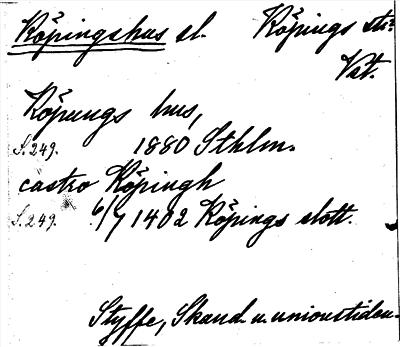 Köpingshus sl. Köpings st:
Vät.
Köpungs hus,
S. 249. 1880 Sthlm.
castro Köpingh
S. 249. 6/7 1402 Köpings slott.
Styffe, Skand. u. unionstiden.